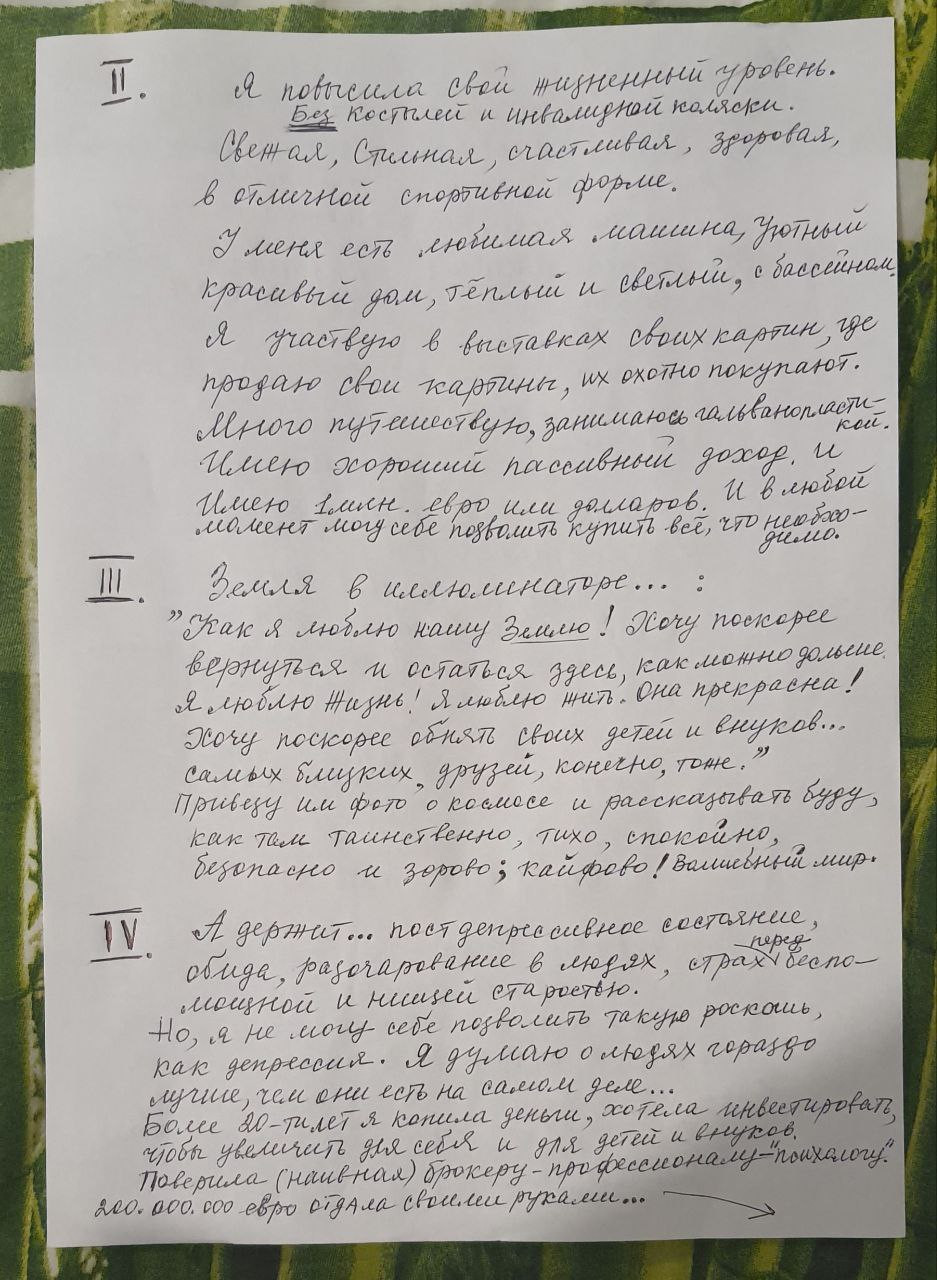 II. Я повысила свой жизненный уровень.
Без костылей и инвалидной коляски.
Свежая, Стильная, счастливая, здоровая,
в отличной спортивной форме.
У меня есть любимая машина, Уютный
красивый дом, тёплый и светлый, с бассейном.
Я участвую в выставках своих картин, где
продаю свои картины, их охотно покупают.
Много путешествую, занимаюсь гальванопласти-
кой.
Имею хороший пассивный доход. и
Имею 1 млн. евро или долларов. И в любой
момент могу себе позволить купить всё, что необхо-
димо.
III. Земля в иллюминаторе... :
"Как я люблю нашу Землю! Хочу поскорее
вернуться и остаться здесь, как можно дольше.
Я люблю Жизнь! Я люблю жить. Она прекрасна!
Хочу поскорее обнять своих детей и внуков...
самых близких, друзей, конечно, тоже."
Привезу им фото о космосе и рассказывать буду,
как там таинственно, тихо, спокойно,
безопасно и здорово; кайфово! Волшебный мир.
IV. А держит... постдепрессивное состояние,
обида, разочарование в людях, страх перед беспо-
мощной и нищей старостью.
Но, я не могу себе позволить такую роскошь,
как депрессия. Я думаю о людях гораздо
лучше, чем они есть на самом деле...
Более 20-ти лет я копила деньги, хотела инвестировать,
чтобы увеличить для себя и для детей и внуков.
Поверила (наивная) брокеру-профессионалу-"психологу".
200.000.000 евро отдала своими руками... →